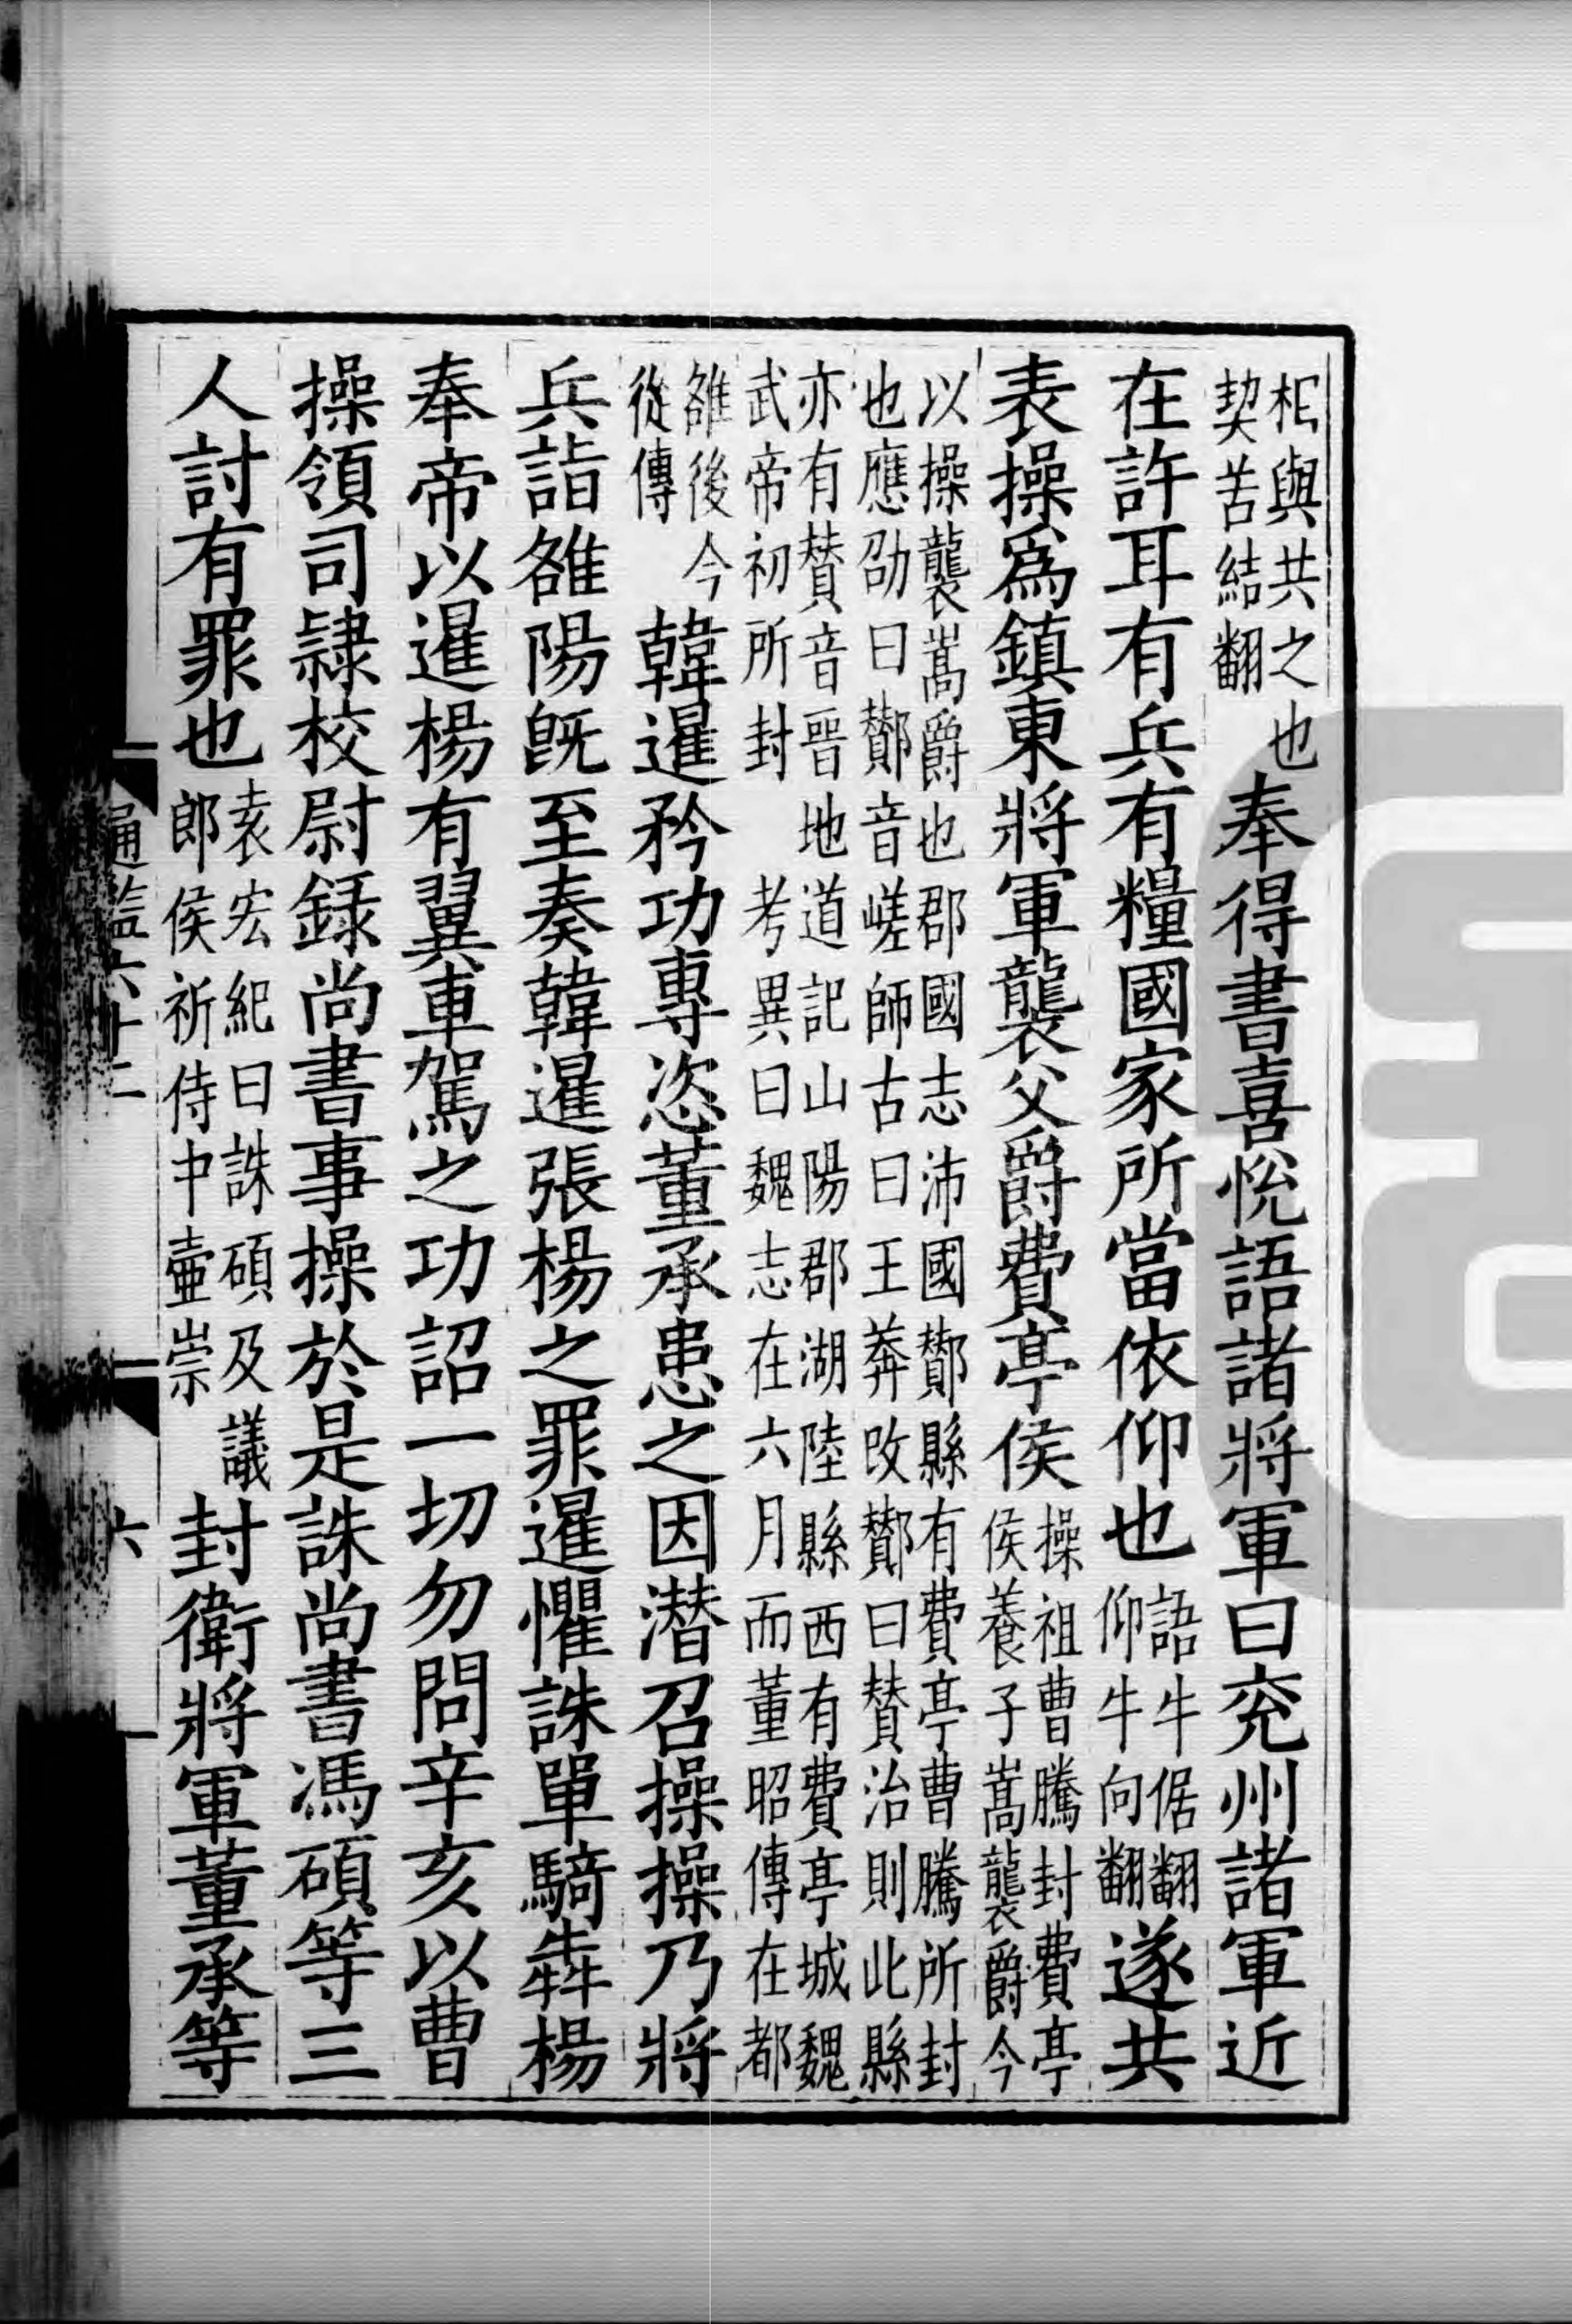 相與共之也契苦結翻奉得書喜悅語諸將軍曰兖州諸軍近
在許耳有兵有糧國家所當依仰也語牛倨翻仰牛向翻遂共
表操爲鎮東將軍襲父爵費亭侯操祖曹騰封費亭侯養子嵩襲爵今
以操襲嵩爵也郡國志沛國酇縣有費亭曹騰所封也應劭曰酇音嵯師古曰王莽改酇曰贊治則此縣
亦有贊音晉地道記山陽郡湖陸縣西有費亭城魏武帝初所封考異曰魏志在六月而董昭傳在都
雒後今從傳韓暹矜功專恣董承患之因潛召操操乃將
兵詣雒陽旣至奏韓暹張楊之罪暹懼誅單騎犇楊
奉帝以暹楊有翼車駕之功詔一切勿問辛亥以曹
操領司隷校尉錄尚書事操於是誅尚書馮碩等三
人討有罪也袁宏紀曰誅碩及議郎侯祈侍中壷崇封衛將軍董承等
通鑑六十二
六